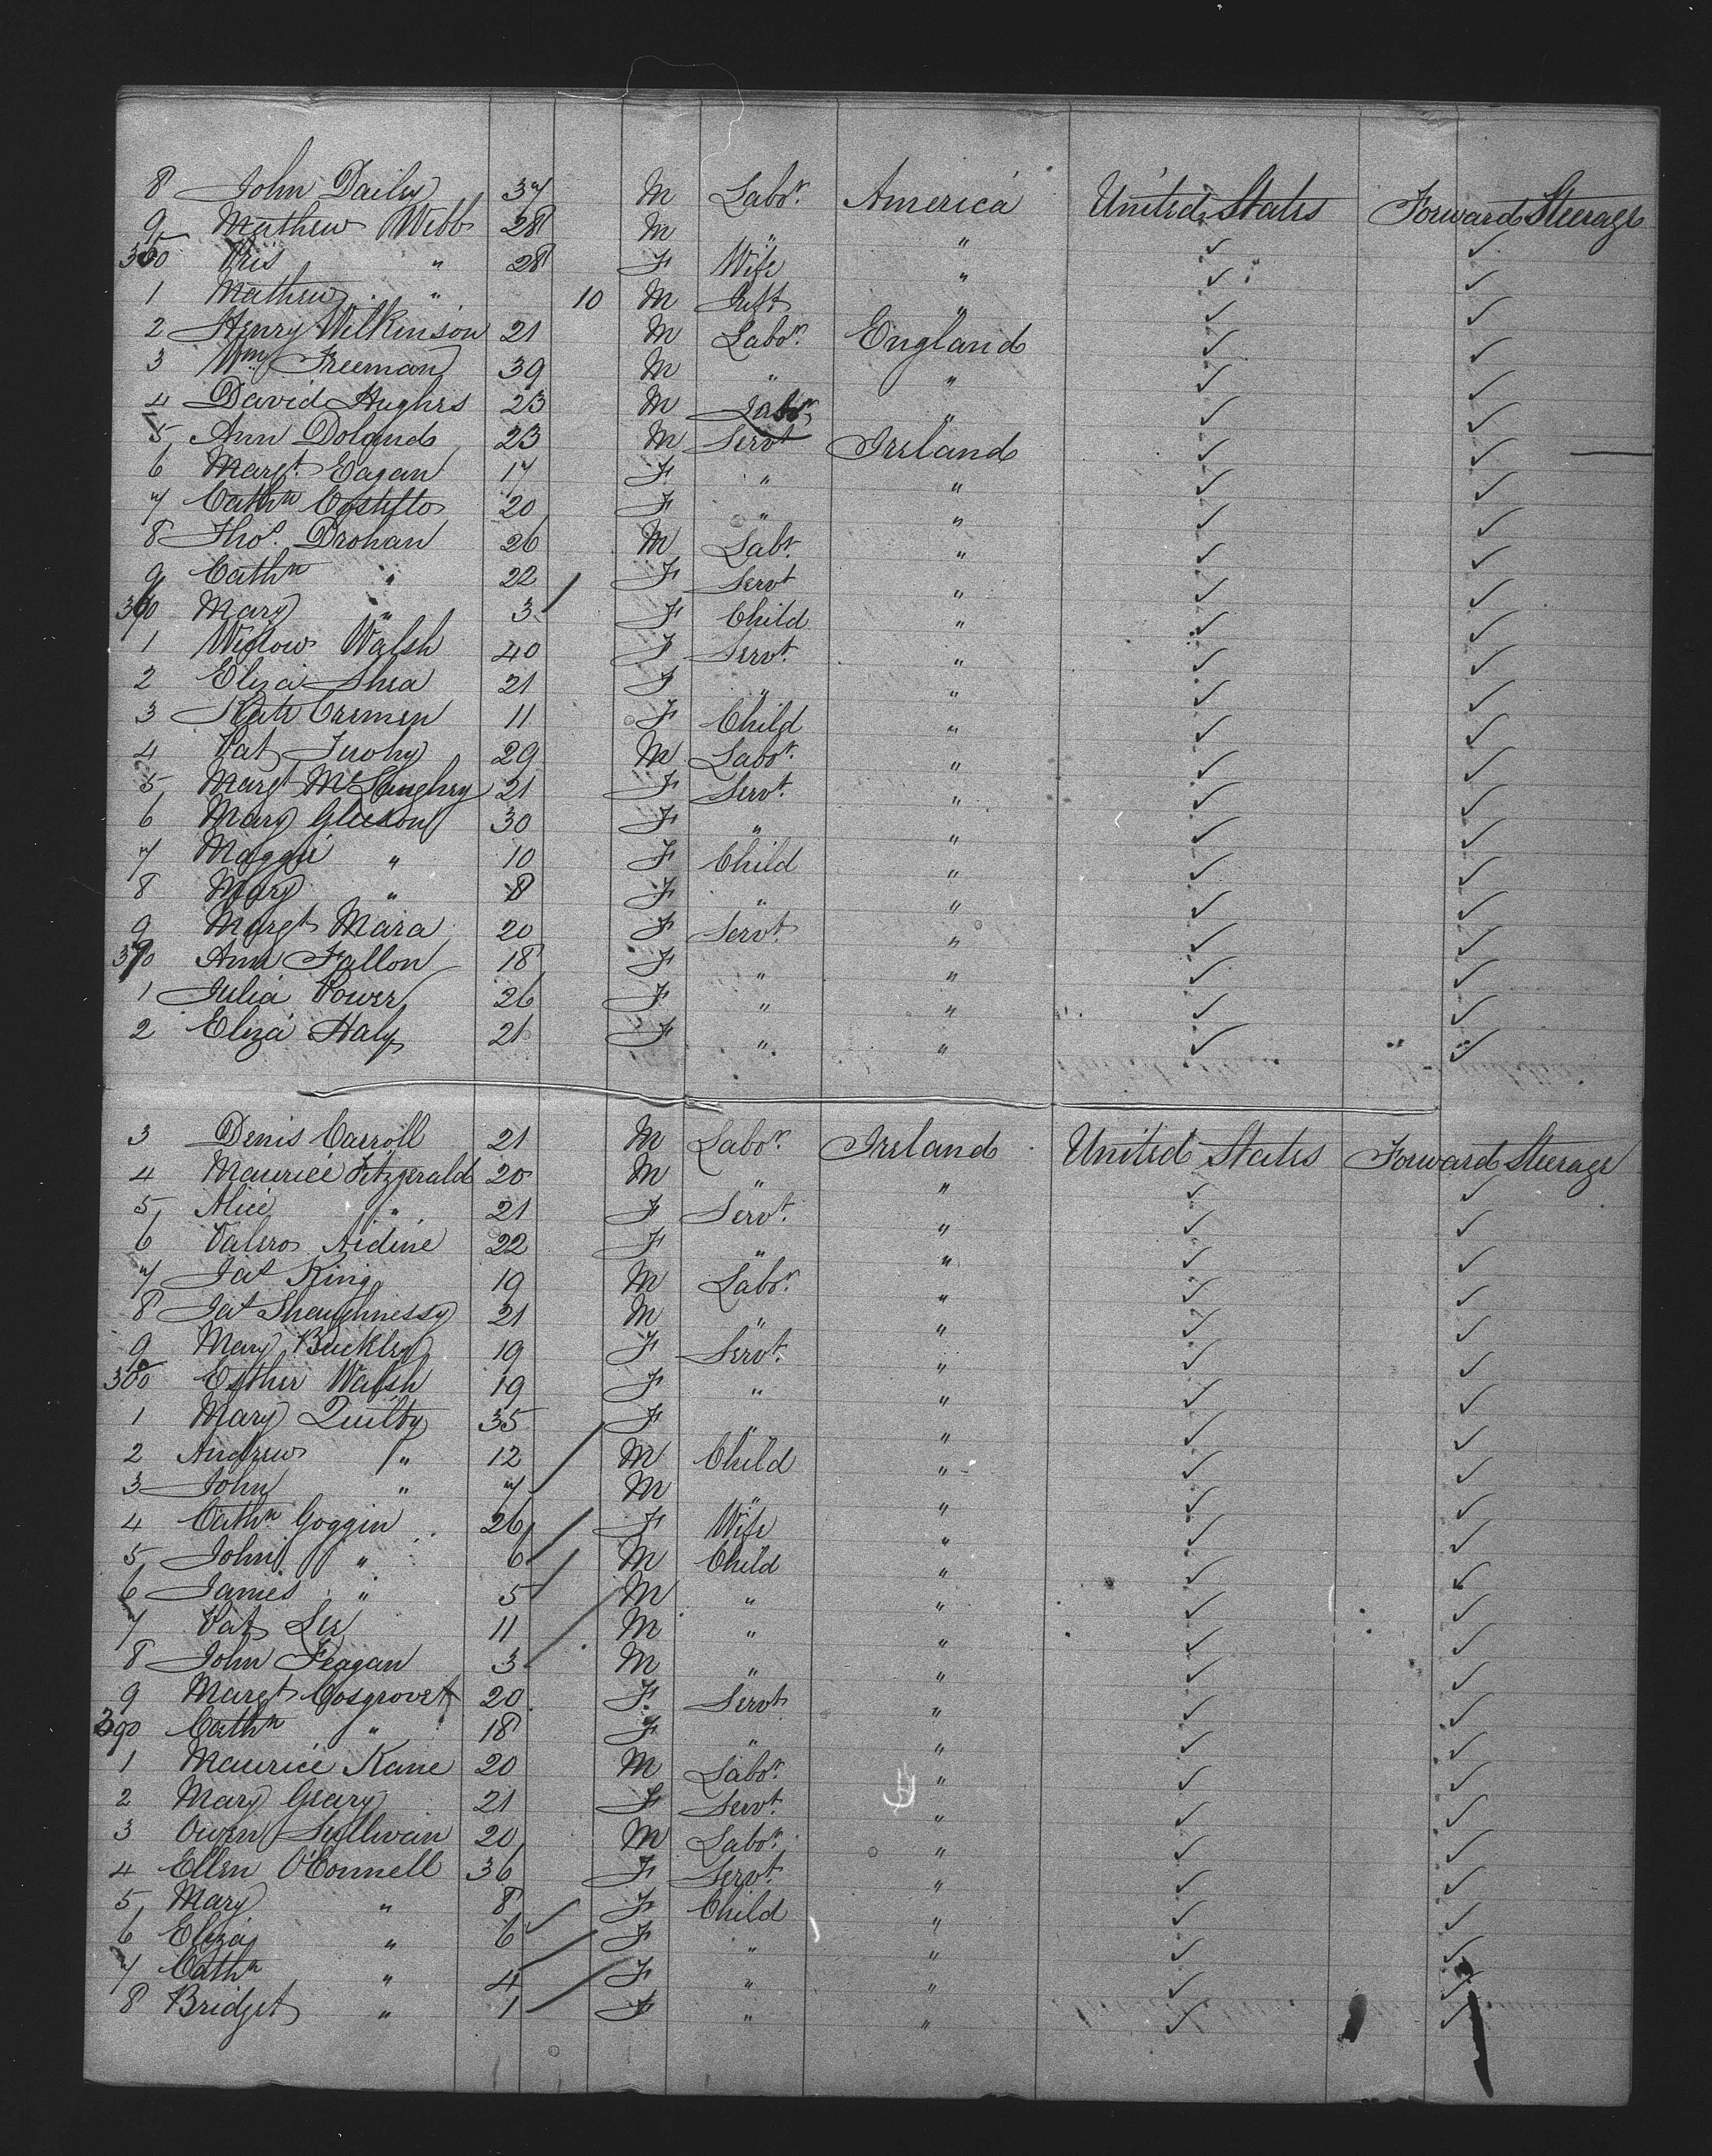 8 John Daily 37 M Labor. America United States Forward Steerage
9 Mathew Webb 28 M " " ✓ ✓
350 " 28 F Wife " ✓ ✓
1 Mathew " 10 M Inft " ✓ ✓
2 Henry Wilkinson 21 M Labor. England ✓ ✓
3 Wm Freeman 39 M " " ✓ ✓
4 David Hughes 23 M Labor " ✓ ✓
5 Ann Doland 23 M Servt Ireland ✓ ✓
6 Margt. Eagan 17 F " " ✓ ✓
7 Cathn Costello 20 F " " ✓ ✓
8 Thos. Drohan 26 M Labr. " ✓ ✓
9 Cathn " 22 F Servt " ✓ ✓
360 Mary " 3 F Child " ✓ ✓
1 Widow Walsh 40 F Servt. " ✓ ✓
2 Eliza Shea 21 F " " ✓ ✓
3 Kate Cremen 11 F Child " ✓ ✓
4 Pat Tuohy 29 M Labor. " ✓ ✓
5 Margt McLaughry 21 F Servt. " ✓ ✓
6 Mary Gleeson 30 F " " ✓ ✓
7 Maggie " 10 F Child " ✓ ✓
8 Mary " 8 F " " ✓ ✓
9 Margt Mara 20 F Servt. " ✓ ✓
370 Ann Fallon 18 F " " ✓ ✓
1 Julia Power 26 F " " ✓ ✓
2 Eliza Haly 21 F " " ✓ ✓
3 Denis Carroll 21 M Labor. Ireland United States Forward Steerage
4 Maurice Fitzgerald 20 M " " ✓ ✓
5 Alice " 21 F Servt. " ✓ ✓
6 22 F " " ✓ ✓
7 Jas King 19 M Labor. " ✓ ✓
8 Jas Shaughnessy 21 M " " ✓ ✓
9 Mary Buckley 19 F Servt. " ✓ ✓
380 Esther Walsh 19 F " " ✓ ✓
1 Mary Quilty 35 F " " ✓ ✓
2 Andrew " 12 M Child " ✓ ✓
3 John " 7 M " " ✓ ✓
4 Cathn Goggin 26 F Wife " ✓ ✓
5 John " 6 M Child " ✓ ✓
6 James " 5 M " " ✓ ✓
7 Pat Lee 11 M " " ✓ ✓
8 John Feagan 3 M " " ✓ ✓
9 Margt Cosgrove 20 F Servt " ✓ ✓
390 Cathn " 18 F " " ✓ ✓
1 Maurice Kane 20 M Labor. " ✓ ✓
2 Mary Geary 21 F Servt. " ✓ ✓
3 Owen Sullivan 20 M Labor. " ✓ ✓
4 Ellen O'Connell 36 F Servt. " ✓ ✓
5 Mary " 8 F Child " ✓ ✓
6 Eliza " 6 F " " ✓ ✓
7 Cathn " 4 F " " ✓ ✓
8 Bridget " 1 F " " ✓ ✓